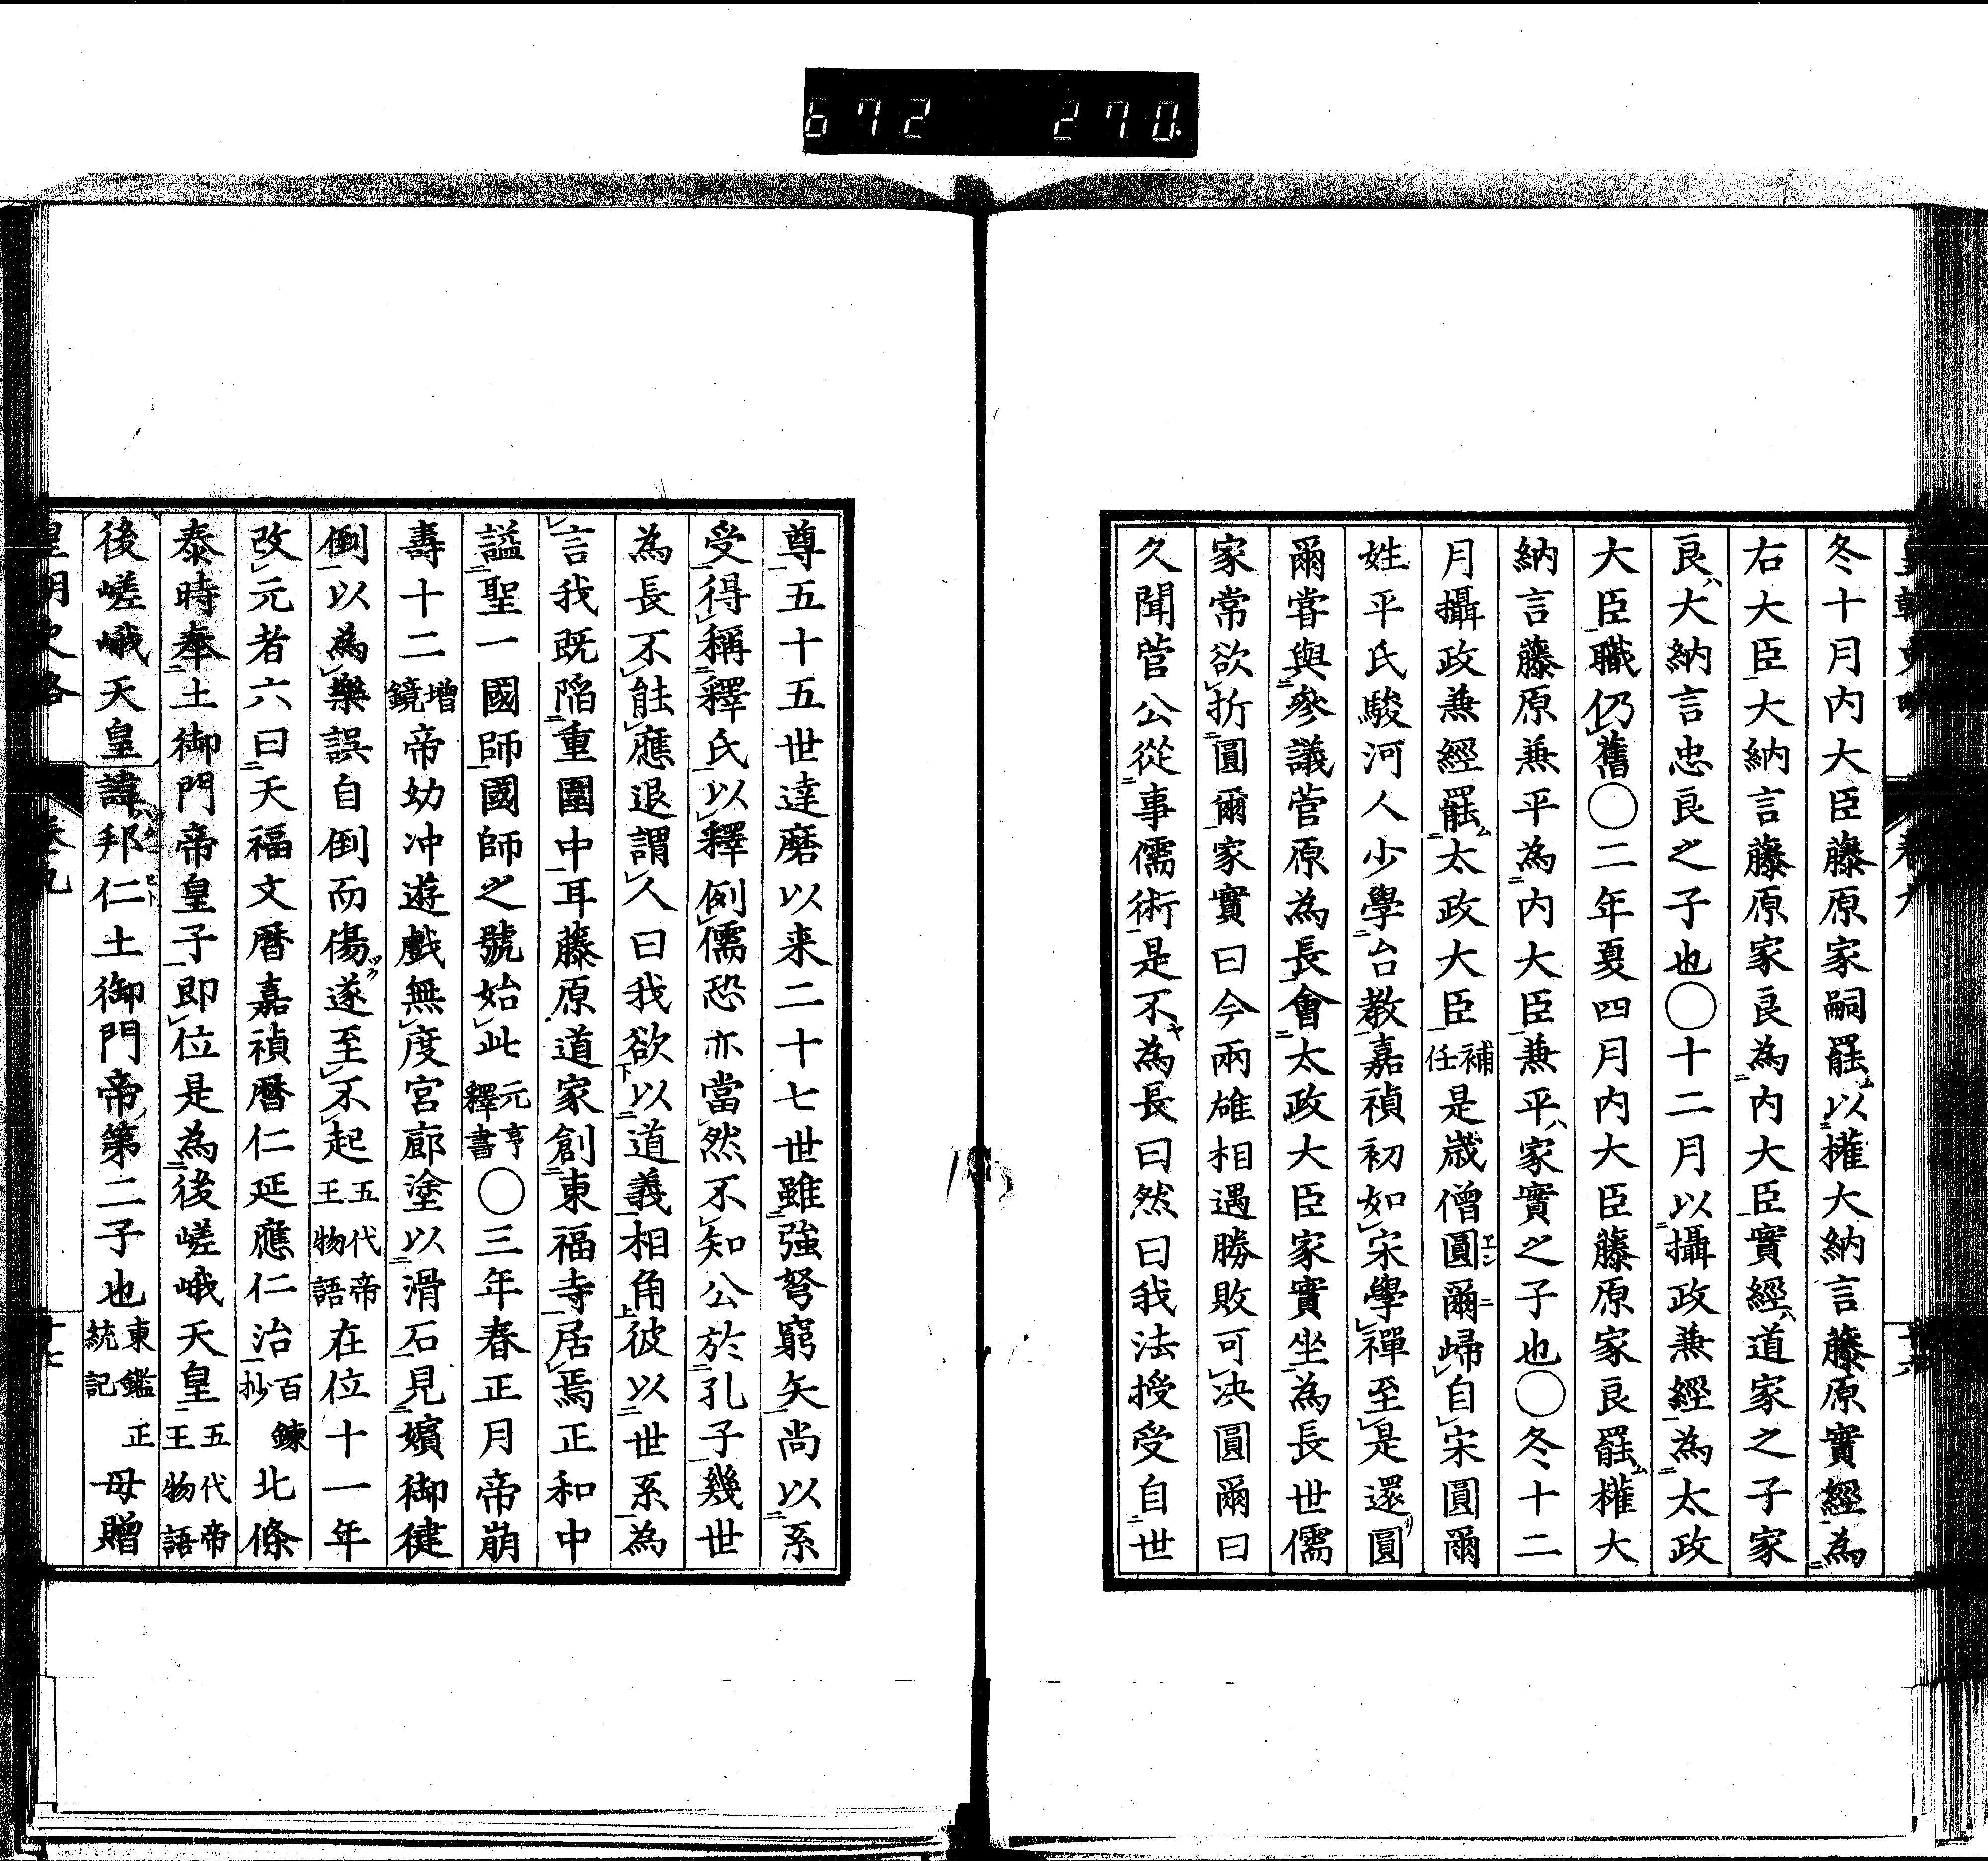 672 270.
皇朝史略 卷九 十六
冬十月内大臣藤原家嗣罷以權大納言藤原實經為
右大臣大納言藤原家良為内大臣實經道家之子家
良大納言忠良之子也〇十二月以攝政兼經為太政
大臣職仍舊〇二年夏四月内大臣藤原家良罷權大
納言藤原兼平為内大臣兼平家實之子也〇冬十二
月攝政兼經罷太政大臣補任是歲僧圓爾歸自宋圓爾
姓平氏駿河人少學台教嘉禎初如宋學禪至是還圓
爾嘗與參議菅原為長會太政大臣家實坐為長世儒
家常欲折圓爾家實曰今兩雄相遇勝敗可決圓爾曰
久聞菅公從事儒術是不為長曰然曰我法授受自世
尊五十五世達磨以来二十七世雖強弩窮矢尚以系
受得稱釋氏以釋例儒恐亦當然不知公於孔子幾世
為長不能應退謂人曰我欲以道義相角彼以世系為
言我既陷重圍中耳藤原道家創東福寺居焉正和中
謚聖一國師國師之號始此元亨釋書〇三年春正月帝崩
壽十二增鏡帝幼冲遊戲無度宮廊塗以滑石見嬪御徤
倒以為樂誤自倒而傷遂至不起五代帝王物語在位十一年
改元者六曰天福文曆嘉禎曆仁延應仁治百鍊抄北條
泰時奉土御門帝皇子即位是為後嵯峨天皇五代帝王物語
後嵯峨天皇諱邦仁土御門帝第二子也東鑑正統記母贈
皇朝史略 卷九 十七